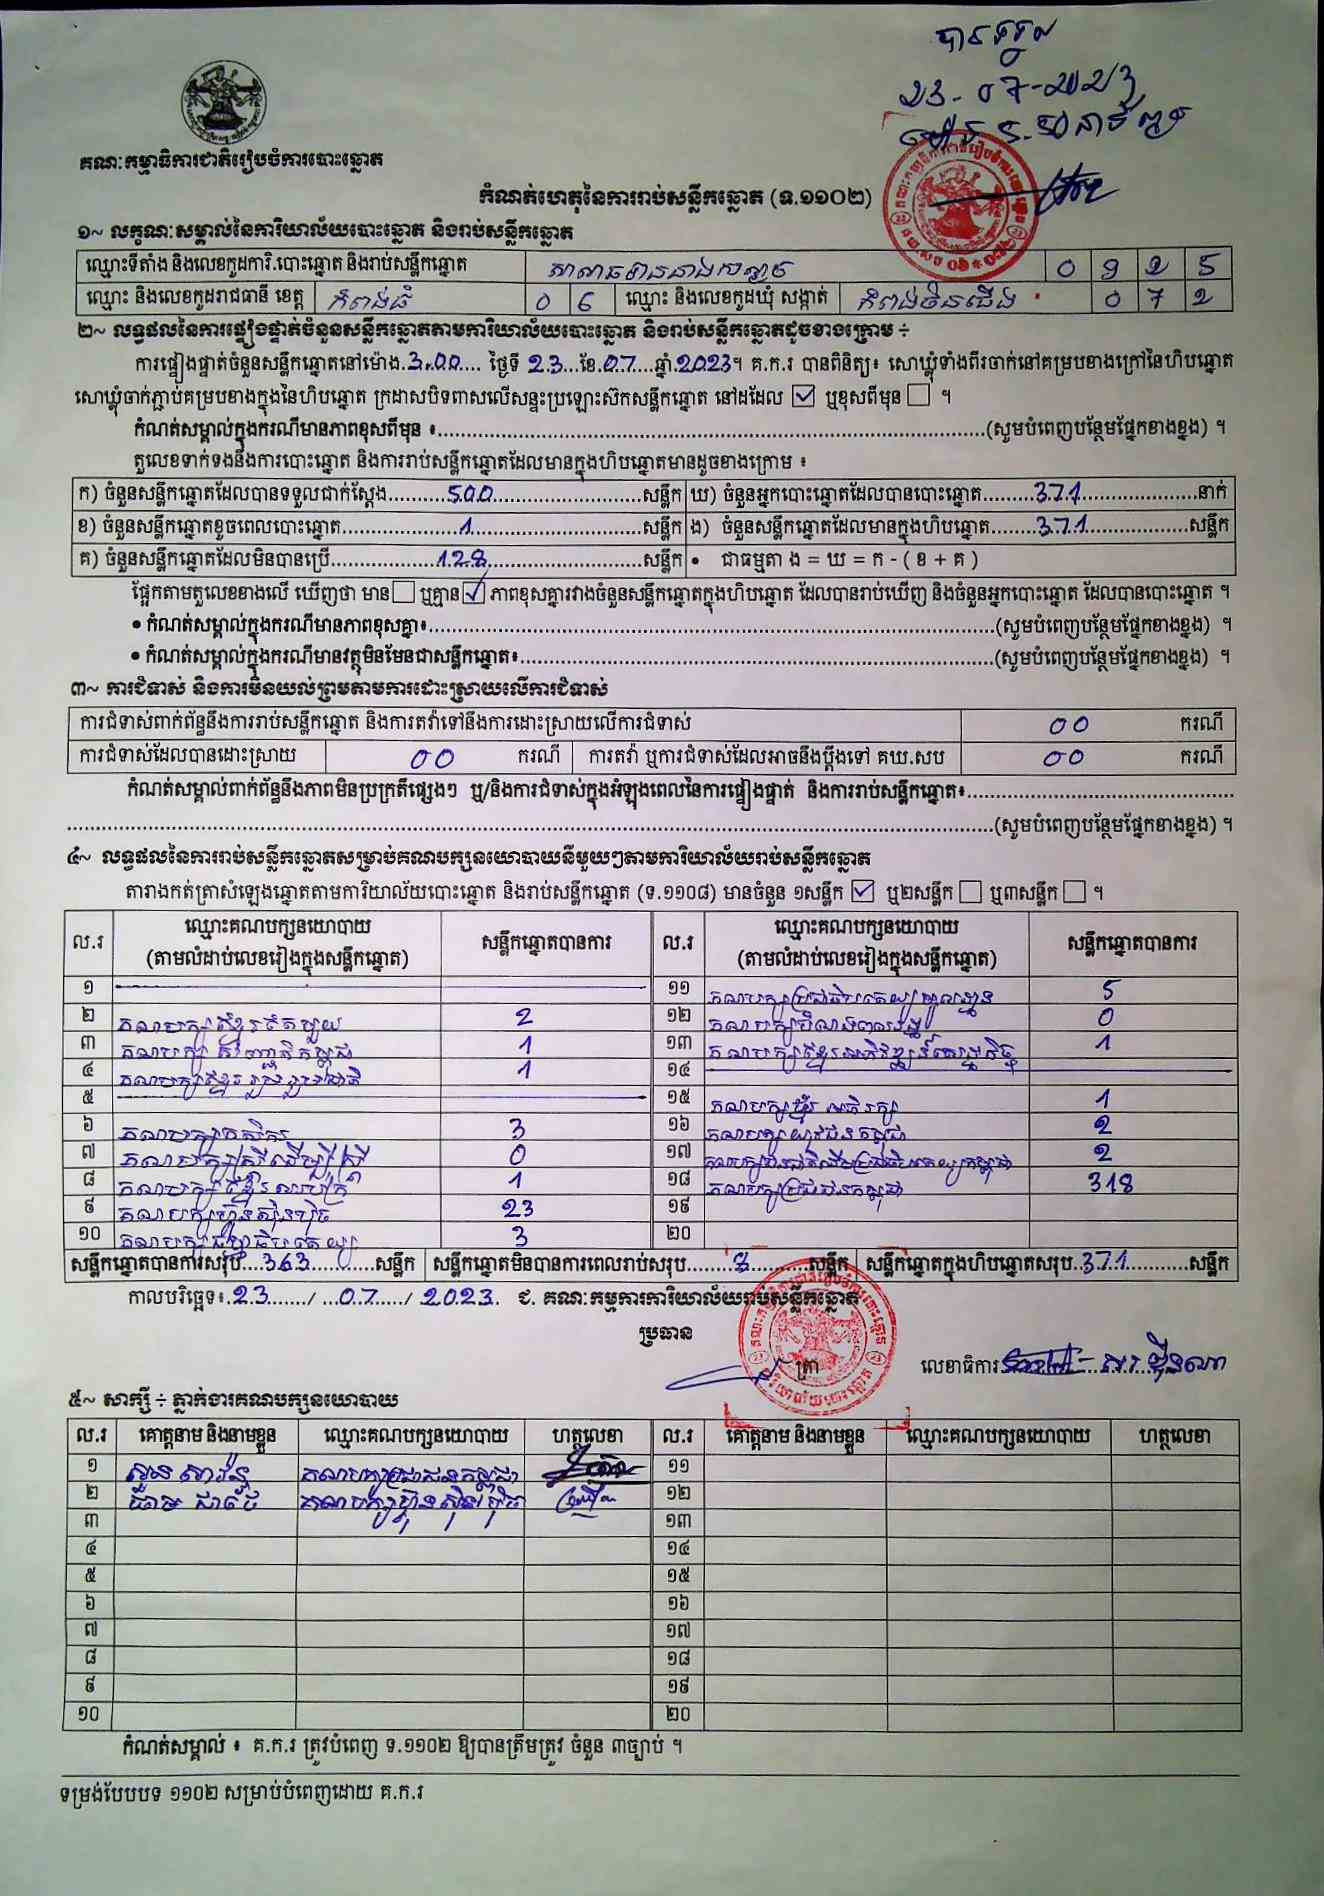 បានទទួល
23-07-2023
គណៈកម្មាធិការជាតិរៀបចំការបោះឆ្នោត
កំណត់ហេតុនៃការរាប់សន្លឹកឆ្នោត (ទ.១១០២)
១~ លក្ខណៈសម្គាល់នៃការិយាល័យបោះឆ្នោត និងរាប់សន្លឹកឆ្នោត
ឈ្មោះទីតាំង និងលេខកូដការិ.បោះឆ្នោត និងរាប់សន្លឹកឆ្នោត 0 9 2 5
ឈ្មោះ និងលេខកូដរាជធានី ខេត្ត កំពង់ធំ 0 6 ឈ្មោះ និងលេខកូដឃុំ សង្កាត់ កំពង់ចិនជើង 0 7 2
២~ លទ្ធផលនៃការផ្ទៀងផ្ទាត់ចំនួនសន្លឹកឆ្នោតតាមការិយាល័យបោះឆ្នោត និងរាប់សន្លឹកឆ្នោតដូចខាងក្រោម ÷
ការផ្ទៀងផ្ទាត់ចំនួនសន្លឹកឆ្នោតនៅម៉ោង.3.00.... ថ្ងៃទី 23...ខែ.07...ឆ្នាំ.2023។ គ.ក.រ បានពិនិត្យ៖ សោឃ្លុំទាំងពីរចាក់នៅគម្របខាងក្រៅនៃហិបឆ្នោត
សោឃ្លុំចាក់ភ្ជាប់គម្របខាងក្នុងនៃហិបឆ្នោត ក្រដាសបិទពាសលើសន្ទះប្រឡោះស៊កសន្លឹកឆ្នោត នៅដដែល ☑ ឬខុសពីមុន ☐ ។
កំណត់សម្គាល់ក្នុងករណីមានភាពខុសពីមុន ៖...........(សូមបំពេញបន្ថែមផ្នែកខាងខ្នង) ។
តួលេខទាក់ទងនឹងការបោះឆ្នោត និងការរាប់សន្លឹកឆ្នោតដែលមានក្នុងហិបឆ្នោតមានដូចខាងក្រោម ៖
ក) ចំនួនសន្លឹកឆ្នោតដែលបានទទួលជាក់ស្តែង..........500..........សន្លឹក ឃ) ចំនួនអ្នកបោះឆ្នោតដែលបានបោះឆ្នោត.........371..........នាក់
ខ) ចំនួនសន្លឹកឆ្នោតខូចពេលបោះឆ្នោត..........1..........សន្លឹក ង) ចំនួនសន្លឹកឆ្នោតដែលមានក្នុងហិបឆ្នោត........371..........សន្លឹក
គ) ចំនួនសន្លឹកឆ្នោតដែលមិនបានប្រើ..........128..........សន្លឹក • ជាធម្មតា ង = ឃ = ក - ( ខ + គ )
ផ្អែកតាមតួលេខខាងលើ ឃើញថា មាន ☐ ឬគ្មាន ☑ ភាពខុសគ្នារវាងចំនួនសន្លឹកឆ្នោតក្នុងហិបឆ្នោត ដែលបានរាប់ឃើញ និងចំនួនអ្នកបោះឆ្នោត ដែលបានបោះឆ្នោត ។
• កំណត់សម្គាល់ក្នុងករណីមានភាពខុសគ្នា៖..........(សូមបំពេញបន្ថែមផ្នែកខាងខ្នង) ។
• កំណត់សម្គាល់ក្នុងករណីមានវត្ថុមិនមែនជាសន្លឹកឆ្នោត៖..........(សូមបំពេញបន្ថែមផ្នែកខាងខ្នង) ។
៣~ ការជំទាស់ និងការមិនយល់ព្រមតាមការដោះស្រាយលើការជំទាស់
ការជំទាស់ពាក់ព័ន្ធនឹងការរាប់សន្លឹកឆ្នោត និងការតវ៉ាទៅនឹងការដោះស្រាយលើការជំទាស់ 00 ករណី
ការជំទាស់ដែលបានដោះស្រាយ 00 ករណី ការតវ៉ា ឬការជំទាស់ដែលអាចនឹងប្តឹងទៅ គឃ.សប 00 ករណី
កំណត់សម្គាល់ពាក់ព័ន្ធនឹងភាពមិនប្រក្រតីផ្សេងៗ ឬ/និងការជំទាស់ក្នុងអំឡុងពេលនៃការផ្ទៀងផ្ទាត់ និងការរាប់សន្លឹកឆ្នោត៖..........
..........(សូមបំពេញបន្ថែមផ្នែកខាងខ្នង) ។
៤~ លទ្ធផលនៃការរាប់សន្លឹកឆ្នោតសម្រាប់គណបក្សនយោបាយនីមួយៗតាមការិយាល័យរាប់សន្លឹកឆ្នោត
តារាងកត់ត្រាសំឡេងឆ្នោតតាមការិយាល័យបោះឆ្នោត និងរាប់សន្លឹកឆ្នោត (ទ.១១០៨) មានចំនួន ១សន្លឹក ☑ ឬ២សន្លឹក ☐ ឬ៣សន្លឹក ☐ ។
ល.រ ឈ្មោះគណបក្សនយោបាយ (តាមលំដាប់លេខរៀងក្នុងសន្លឹកឆ្នោត) សន្លឹកឆ្នោតបានការ ល.រ ឈ្មោះគណបក្សនយោបាយ (តាមលំដាប់លេខរៀងក្នុងសន្លឹកឆ្នោត) សន្លឹកឆ្នោតបានការ
១ ១១ គណបក្សប្រជាធិបតេយ្យមូលដ្ឋាន 5
២ គណបក្សខ្មែរតែមួយ 2 ១២ 0
៣ គណបក្ស 1 ១៣ គណបក្សខ្មែរអភិវឌ្ឍន៍សេដ្ឋកិច្ច 1
៤ គណបក្សខ្មែររួបរួមជាតិ 1 ១៤
៥ ១៥ គណបក្សខ្មែរអភិរក្ស 1
៦ គណបក្សកសិករ 3 ១៦ គណបក្សយុវជនកម្ពុជា 2
៧ គណបក្សស្រីដើម្បីស្រី 0 ១៧ 2
៨ គណបក្សខ្មែរឈប់ក្រ 1 ១៨ គណបក្សប្រជាជនកម្ពុជា 318
៩ គណបក្សហ្វ៊ុនស៊ិនប៉ិច 23 ១៩
១០ គណបក្សធម្មាធិបតេយ្យ 3 ២០
សន្លឹកឆ្នោតបានការសរុប...363..........សន្លឹក សន្លឹកឆ្នោតមិនបានការពេលរាប់សរុប........8..........សន្លឹក សន្លឹកឆ្នោតក្នុងហិបឆ្នោតសរុប..371..........សន្លឹក
កាលបរិច្ឆេទ៖.23......./ ...07...../ 2023. ជ. គណៈកម្មការការិយាល័យរាប់សន្លឹកឆ្នោត
ប្រធាន
ត្រា លេខាធិការ
៥~ សាក្សី ÷ ភ្នាក់ងារគណបក្សនយោបាយ
ល.រ គោត្តនាម និងនាមខ្លួន ឈ្មោះគណបក្សនយោបាយ ហត្ថលេខា ល.រ គោត្តនាម និងនាមខ្លួន ឈ្មោះគណបក្សនយោបាយ ហត្ថលេខា
១ គណបក្សប្រជាជនកម្ពុជា ១១
២ គណបក្សហ្វ៊ុនស៊ិនប៉ិច ១២
៣ ១៣
៤ ១៤
៥ ១៥
៦ ១៦
៧ ១៧
៨ ១៨
៩ ១៩
១០ ២០
កំណត់សម្គាល់ ៖ គ.ក.រ ត្រូវបំពេញ ទ.១១០២ ឱ្យបានត្រឹមត្រូវ ចំនួន ៣ច្បាប់ ។
ទម្រង់បែបបទ ១១០២ សម្រាប់បំពេញដោយ គ.ក.រ